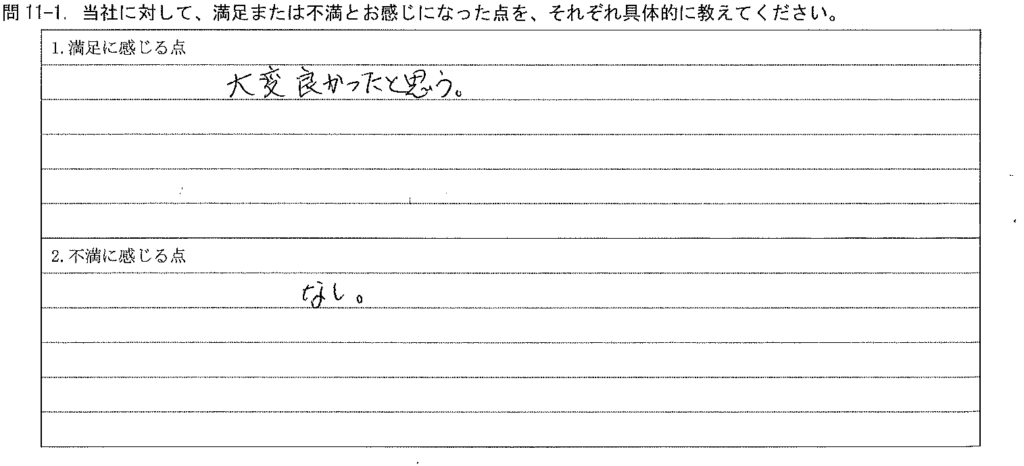 問 11-1. 当社に対して、満足または不満とお感じになった点を、それぞれ具体的に教えてください。
1.満足に感じる点
大変良かったと思う。
2.不満に感じる点
なし。